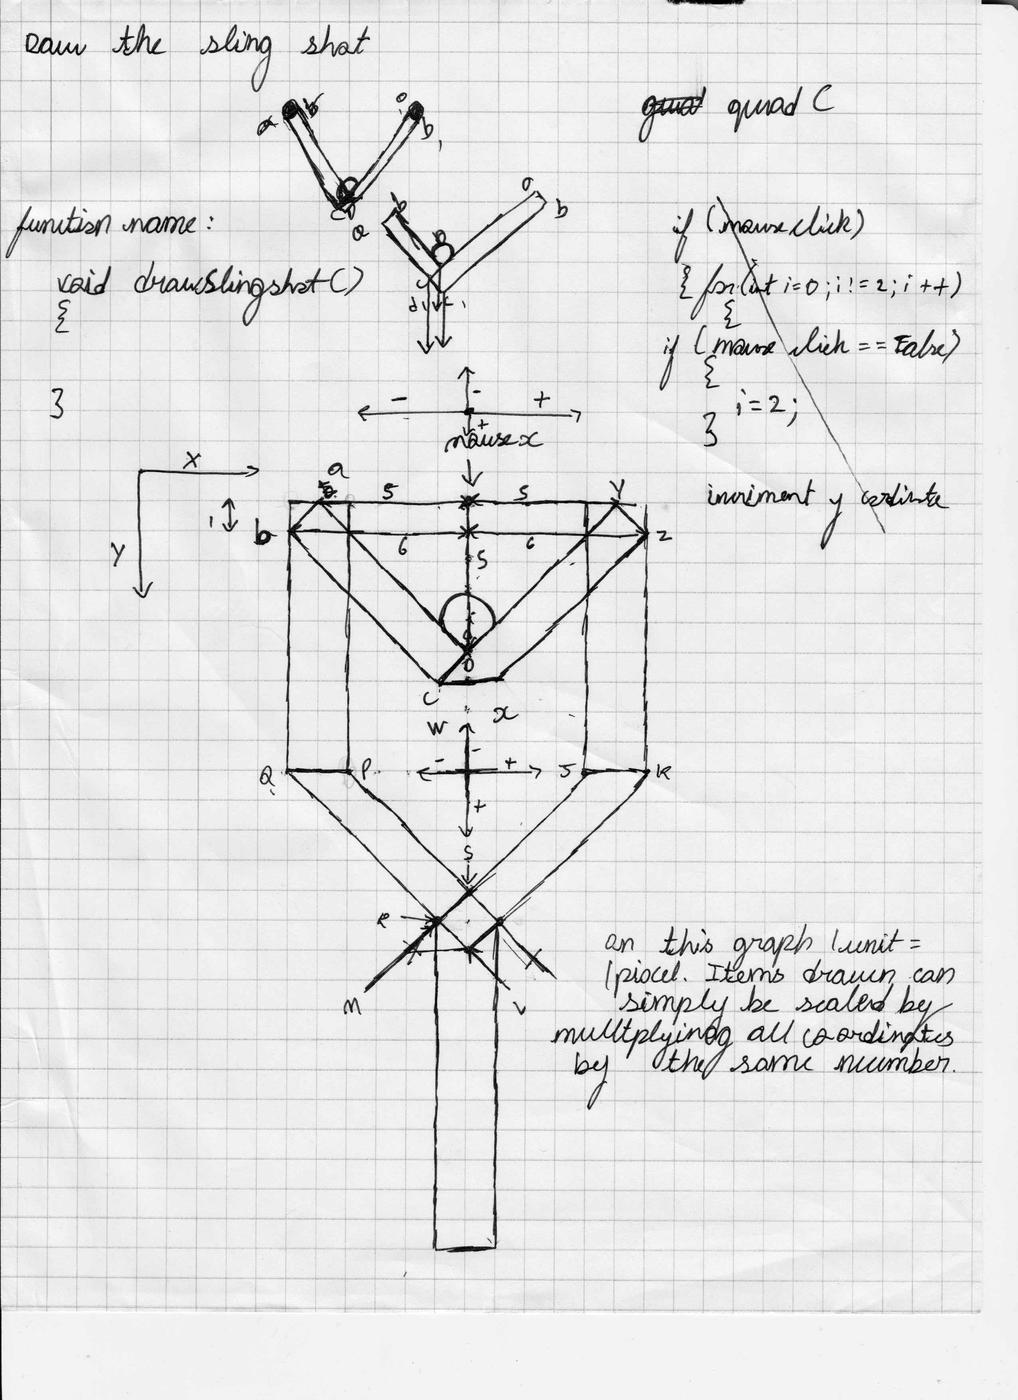 Draw the sling shot
quad C
a b o b
a b o b
function name:
void drawSlingshot()
{
}
if (mouse click)
{ for (int i=0; i!=2; i++)
{
if (mouse click == False)
{
i=2;
}
- - +
+
mouse x
increment y cordinate
x
y
a
5 5 y
1
b 6 6 z
5
o
c
w x
Q P - - + J K
+
S
R
M L
on this graph 1 unit =
1 pixel. Items drawn can
simply be scaled by
multplying all coordinates
by the same number.